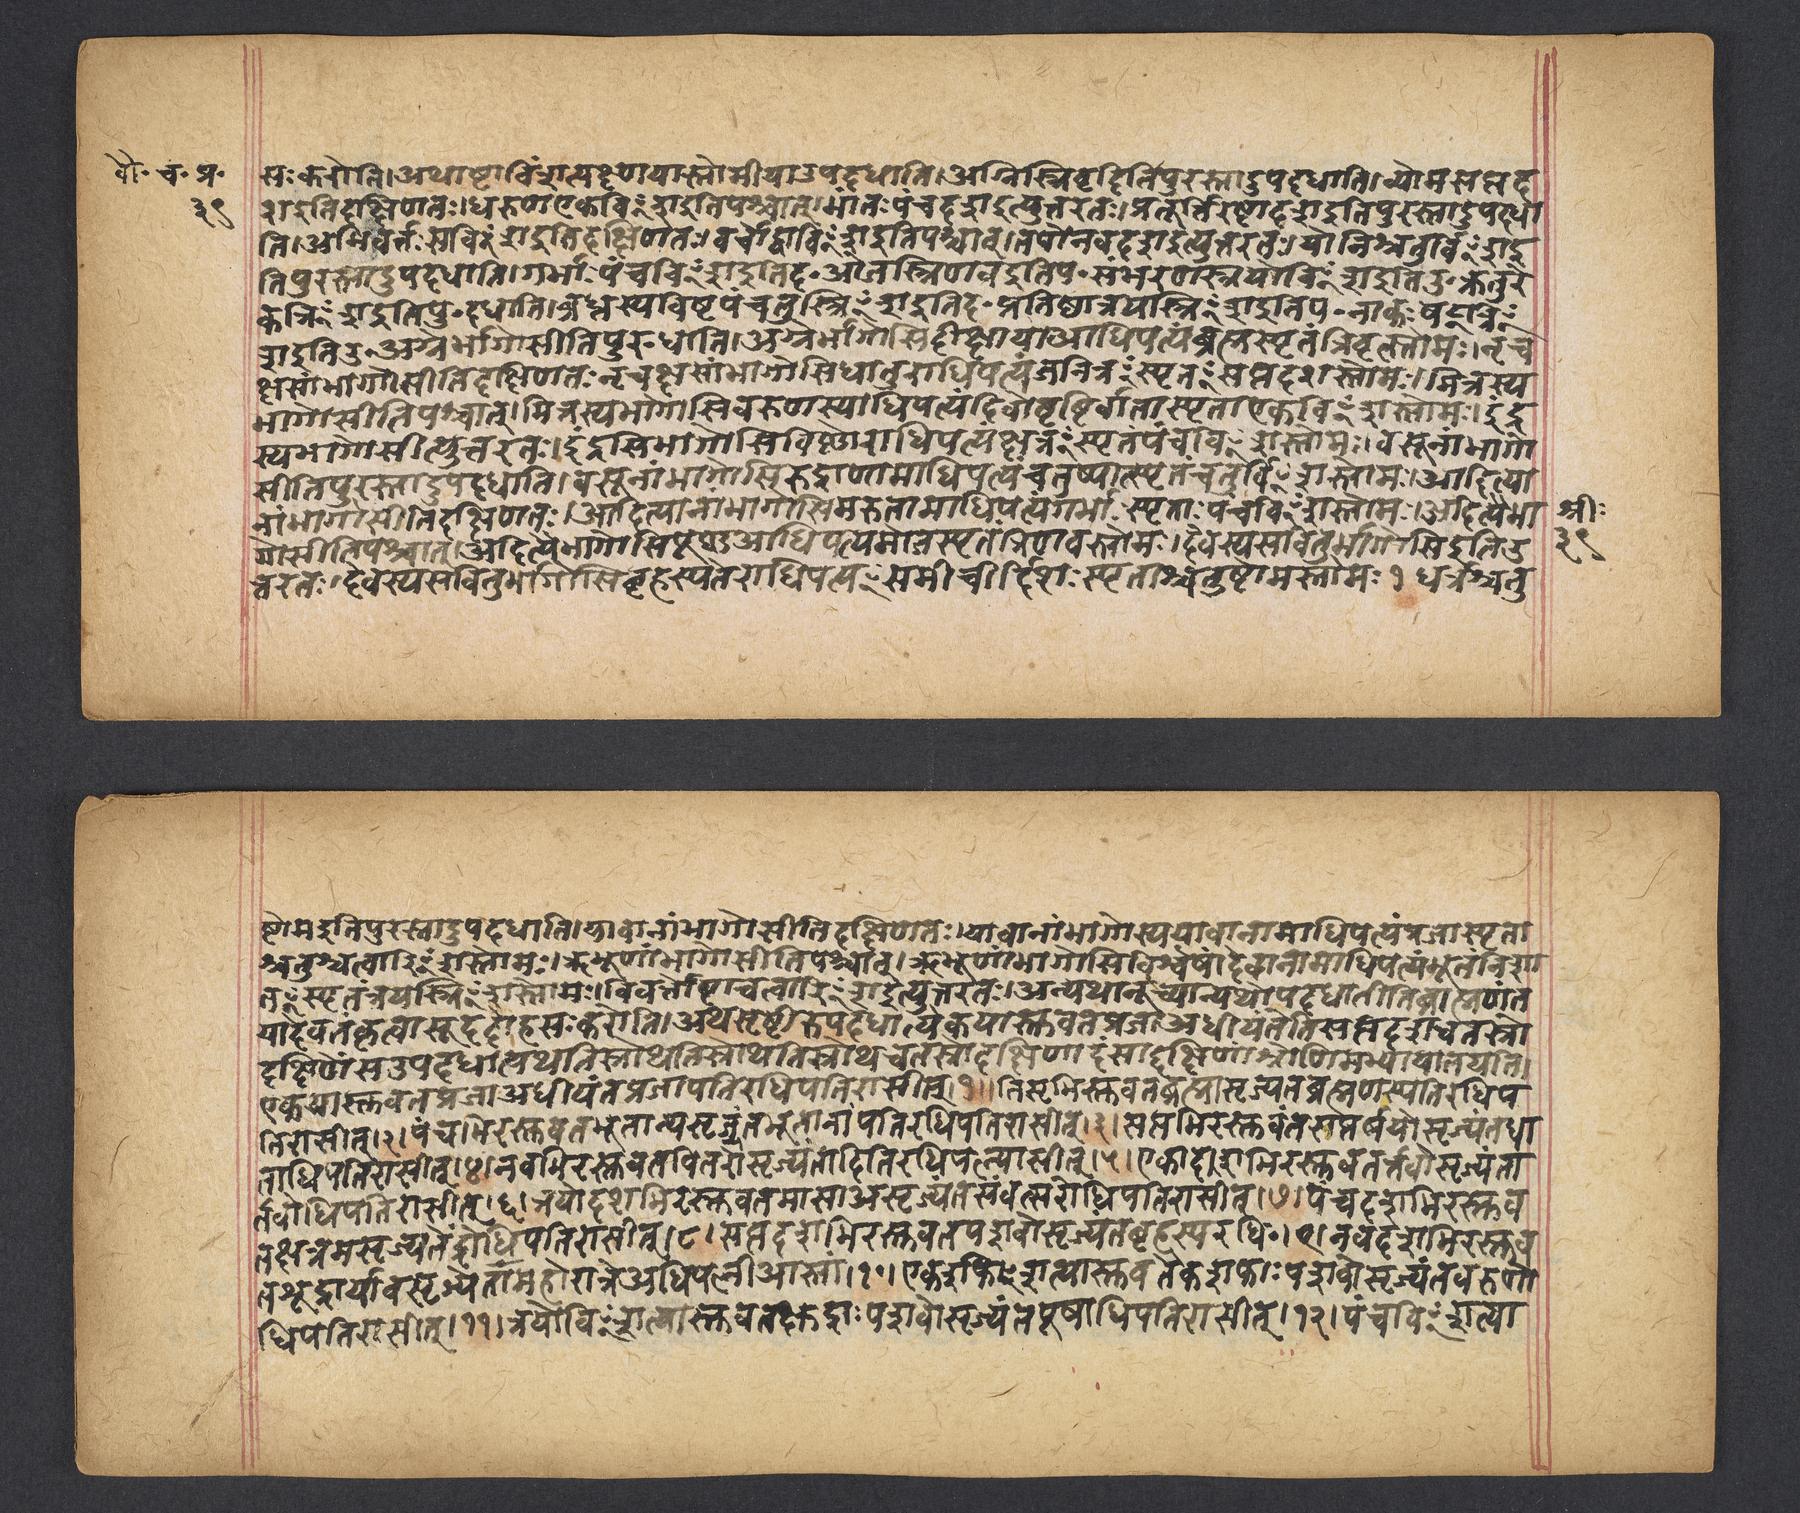 बौ॰ चं॰ प्र॰
३९
सः करोति।अथाष्टाविंशत्यक्ष्णयास्तोमीयाउपदधाति।अग्निस्त्रिवृदितिपुरस्तादुपदधाति।व्योमसप्तद
शइतिदक्षिणतः।धरुणएकविꣳशइतिपश्चात्।भांतःपंचदशइत्युत्तरतः।प्रतूर्तिरष्टादशइतिपुरस्तादुपदधा
ति।अभिवर्त्तःसविꣳशइतिदक्षिणतः।वर्चोद्वाविꣳशइतिपश्चात्।तपोनवदशइत्युत्तरतः।योनिश्चतुर्विꣳशइ
तिपुरस्तादुपदधाति।गर्भाःपंचविꣳशइतिद॰ओजस्त्रिणवइतिप॰संभरणस्त्रयोविꣳशइतिउ॰क्रतुरे
कत्रिꣳशइतिपु॰दधाति।ब्रध्नस्यविष्टपंचतुस्त्रिꣳशइतिद॰प्रतिष्ठात्रयस्त्रिꣳशइतिप॰नाकःषट्त्रिꣳ
शइतिउ॰अग्नेर्भागोसीतिपुर॰धाति।अग्नेर्भागोसिदीक्षायाआधिपत्यंब्रह्मस्पृतंत्रिवृत्स्तोमः।नृच
क्षसांभागोसीतिदक्षिणतःनृचक्षसांभागोसिधातुराधिपत्यंजनित्रꣳस्पृतꣳसप्तदशस्तोमः।मित्रस्य
भागोसीतिपश्चात्।मित्रस्यभागोसिवरुणस्याधिपत्यंदिवोवृष्टिर्वातास्पृताएकविꣳशस्तोमः।इंद्र
स्यभागोसीत्युत्तरतः।इंद्रस्यभागोसिविष्णोराधिपत्यंक्षत्रꣳस्पृतंपंचदशस्तोमः।वसूनांभागो
सीतिपुरस्तादुपदधाति।वसूनांभागोसिरुद्राणामाधिपत्यंचतुष्पात्स्पृतंचतुर्विꣳशस्तोमः।आदित्या
नांभागोसीतिदक्षिणतः।आदित्यानांभागोसिमरुतामाधिपत्यंगर्भाःस्पृताःपंचविꣳशस्तोमः।अदित्यैभा
गोसीतिपश्चात्।अदित्यैभागोसिपूष्णआधिपत्यमोजस्पृतंत्रिणवस्तोमः।देवस्यसवितुर्भागोसिइतिउ
त्तरतः।देवस्यसवितुर्भागोसिबृहस्पतेराधिपत्यꣳसमीचीर्दिशःस्पृताश्चतुष्टोमस्तोमः१धर्त्रश्चतु
श्रीः
३९
ष्टोमइतिपुरस्तादुपदधाति।यावानांभागोसीतिदक्षिणतः।यावानांभागोस्ययावानामाधिपत्यंप्रजास्पृता
श्चतुश्चत्वारिꣳशस्तोमः।ऋभूणांभागोसीतिपश्चात्।ऋभूणांभागोसिविश्वेषांदेवानामाधिपत्यंभूतंनिशां
तꣳस्पृतंत्रयस्त्रिꣳशस्तोमः।विवर्त्तोष्टाचत्वारिꣳशइत्युत्तरतः।अन्यथानूच्यान्यथोपदधातीतिब्राह्मणंत
यादेवतंकृत्वासूददोहसःकरोति।अथसृष्टीरुपदधात्येकयास्तुवतप्रजाअधीयंतेतिसप्तदशचतस्रो
दक्षिणेंसउपदधात्यथतिस्रोथतिस्रोथतिस्रोथचतस्रोदक्षिणादंसाद्दक्षिणांश्रोणिमभ्यायातयति।
एकयास्तुवतप्रजाअधीयंतप्रजापतिरधिपतिरासीत्।१।तिसृभिरस्तुवतब्रह्मासृज्यतब्रह्मणस्पतिरधिप
तिरासीत्।२।पंचभिरस्तुवतभूतान्यसृज्यंतभूतानांपतिरधिपतिरासीत्।३।सप्तभिरस्तुवंतसप्तर्षयोसृज्यंतधा
ताधिपतिरासीत्।४।नवभिरस्तुवतपितरोसृज्यंतादितिरधिपत्न्यासीत्।५।एकादशभिरस्तुवतर्तवोसृज्यंता
र्तवोधिपतिरासीत्।६।त्रयोदशभिरस्तुवतमासाअसृज्यंतसंवत्सरोधिपतिरासीत्।७।पंचदशभिरस्तुव
तक्षत्रमसृज्यतेंद्रोधिपतिरासीत्।८।सप्तदशभिरस्तुवतपशवोसृज्यंतबृहस्परधि॰।९।नवदशभिरस्तुव
तशूद्रार्यावसृज्येतामहोरात्रेअधिपत्नीआस्तां।१०।एकविꣳशत्यास्तुवतैकशफाःपशवोसृज्यंतवरुणो
धिपतिरासीत्।११।त्रयोविꣳशत्यास्तुवतक्षुद्राःपशवोसृज्यंतपूषाधिपतिरासीत्।१२।पंचविꣳशत्या